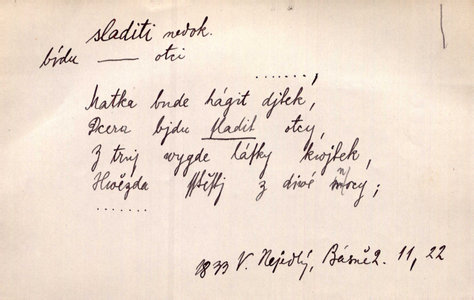 sladiti nedok.
bídu —— otci
.......,
Matka bude hágit djtek,
Dcera bjdu sladit otcy,
Z trnj wygde lásky kwjtek,
Hwězda sstěstj z diwé nocy;
.......
1833 V. Nejedlý, Básně 2. 11, 22